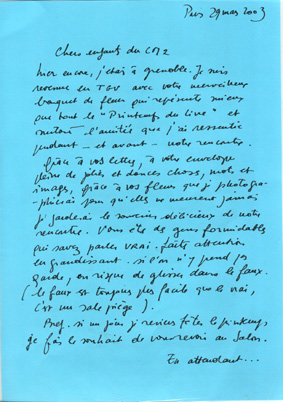 Paris 29 mars 2003
Chers enfants du CM2
Hier encore, j'étais à grenoble. Je suis
revenue en TGV avec votre merveilleux
bouquet de fleurs qui représente mieux
que tout le "Printemps du livre" et
surtout l'amitié que j'ai ressentie
pendant – et avant – notre rencontre.
Grâce à vos lettres, à votre enveloppe
pleine de jolies et douces choses, mots et
images, grâce à vos fleurs que je photogra-
phierai pour qu'elles ne meurent jamais
je garderai le souvenir délicieux de notre
rencontre. Vous êtes de gens formidables
qui savez parler VRAI. faites attention
en grandissant. si l'on n'y prend pas
garde, on risque de glisser dans le faux.
(le faux est toujours plus facile que le vrai,
c'est un sale piège).
Bref. si un jour je reviens fêter le printemps
je fais le souhait de vous revoir au Salon.
En attendant...